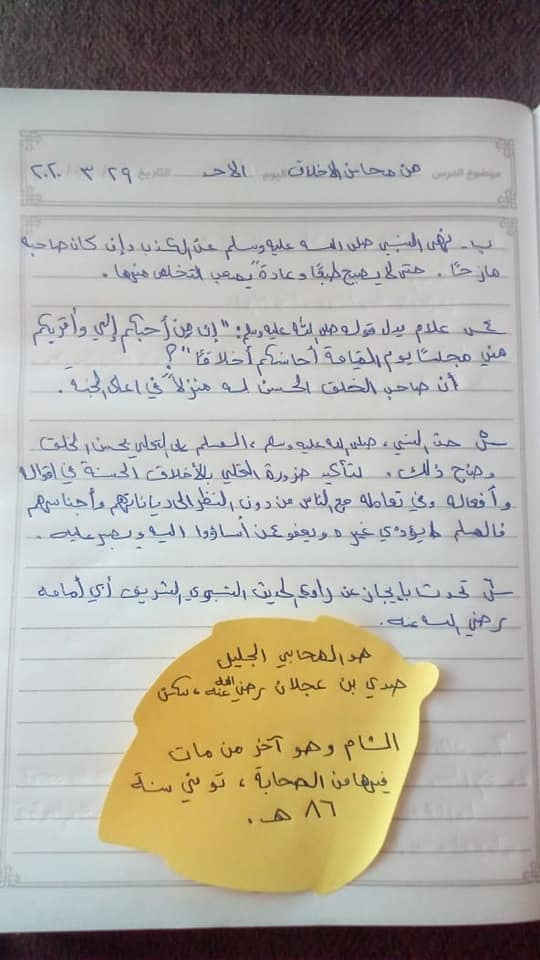 موضوع الدرس من محاسن الأخلاق اليوم الأحد التاريخ ٢٩ / ٣ / ٢٠٢٠
ب- نهى النبي صلى الله عليه وسلم عن الكذب وإن كان صاحبه
مازحًا. حتى لا يصبح طبعًا وعادةً يصعب التخلص منها.
س علام يدل قوله صلى الله عليه وسلم: "إن من أحبكم إلي وأقربكم
مني مجلسًا يوم القيامة أحاسنكم أخلاقًا"؟
أن صاحب الخلق الحسن له منزلاً في اعلى الجنة.
س حث النبي، صلى الله عليه وسلم، المسلم على التحلي بحسن الخلق
وضح ذلك. لتأكيد ضرورة التحلي بالأخلاق الحسنة في اقواله
وأفعاله وفي تعامله مع الناس من دون النظر الى دياناتهم وأجناسهم
فالمسلم لا يؤذي غيره ويعفو عمن أساؤوا اليه ويصبر عليه.
س تحدث بإيجاز عن راوي الحديث النبوي الشريف أبي أمامه
رضي الله عنه.
هو الصحابي الجليل
صدي بن عجلان رضي الله عنه، سكن
الشام وهو آخر من مات
فيها من الصحابة، توفي سنة
٨٦ هـ.